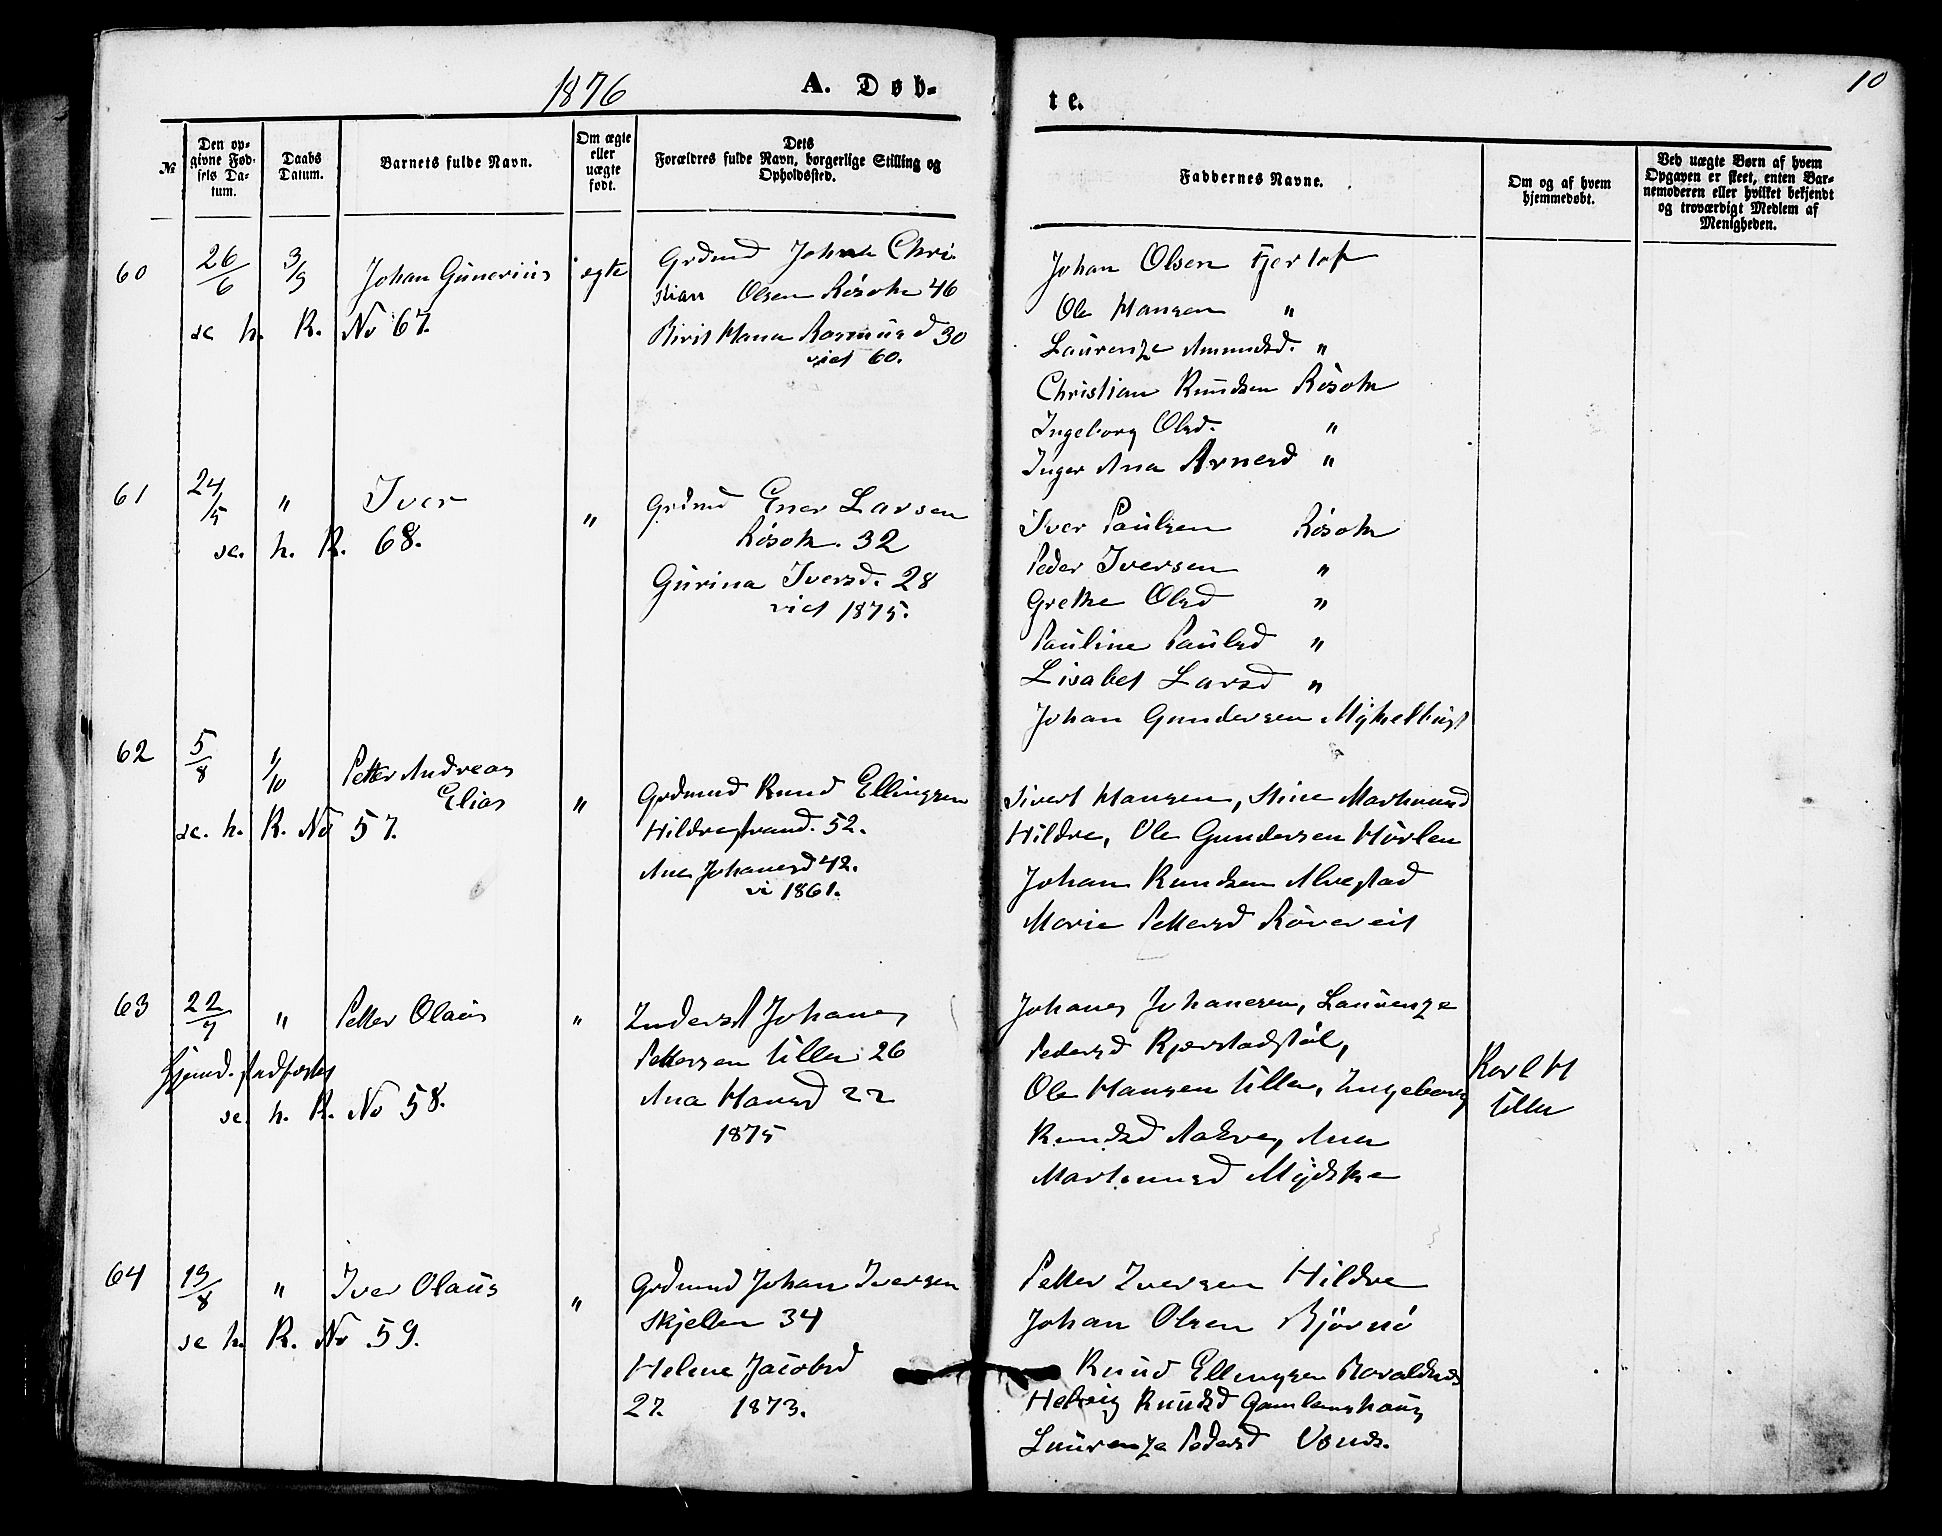 1876
A. Døb-
te.
10
№
Den op-
givne Fød-
sels Da-
tum.
Daabs
Datum.
Barnets fulde Navn.
Om ægte
eller
uægte
født.
Dets
Forældres fulde Navn, borgerlige Stilling og
Opholdssted.
Faddernes Navne.
Om og af hvem
hjemmedøbt.
Ved uægte Børn af hvem
Opgaven er skeet, enten Bar-
nemoderen eller hvilket bekjendt
og troværdigt Medlem af
Menigheden.
60 26/6 3/9 Johan Gunerius ægte
Grdmd Johan Chri
stian Olsen Røsok 46
se h. K. No 67.
Birit Mana Rasmusd 30
viet 60.
Johan Olsen Fjertof
Ole Hansen "
Laurenze Amundsd. "
Christian Knudsen Røsok
Ingeborg Olsd. "
Inger Ana Arnesd "
61 24/5 " Iver "
Grdmd Ener Larsen
Røsok. 32
se. h. K. 68.
Gurina Iversd. 28
viet 1875.
Iver Paulsen Røsok
Peder Iversen "
Grethe Olsd "
Pauline Paulsd "
Lisabet Larsd "
Johan Gundersen Myklebust
62 5/8 1/10 Petter Andreas
Elias "
se. h. K. No 57.
Grdmand Knud Ellingsen
Hildrestrand. 52.
Ane Johanesd 42.
vi 1861.
Sivert Hansen, Stine
Hildre, Ole Gundersen
Johan Knudsen Alvestad
Marie Pettersd Røvereit
63 22/7 " Petter Olaus "
Hjemd. stadfæstet
se. h. K. No 58.
Inderst Johanes
Pettersen Uller 26
Ana Hansd 22
1875
Johanes Johanesen, Laurenze
Pedersd Kjerstadstøl,
Ole Hansen Uller, Ingeborg
Knudsd Aakre, Ane
Martinusd
Karl H
Uller
64 19/8 " Iver Olaus "
se h. K. No 59.
Grdmand Johan Iversen
Skjellen 34
Helene Jacobsd
27. 1873.
Petter Iversen Hildre
Johan Olsen Bjørnø
Knud Ellingsen
Helvig Knudsd
Laurenze Pedersd